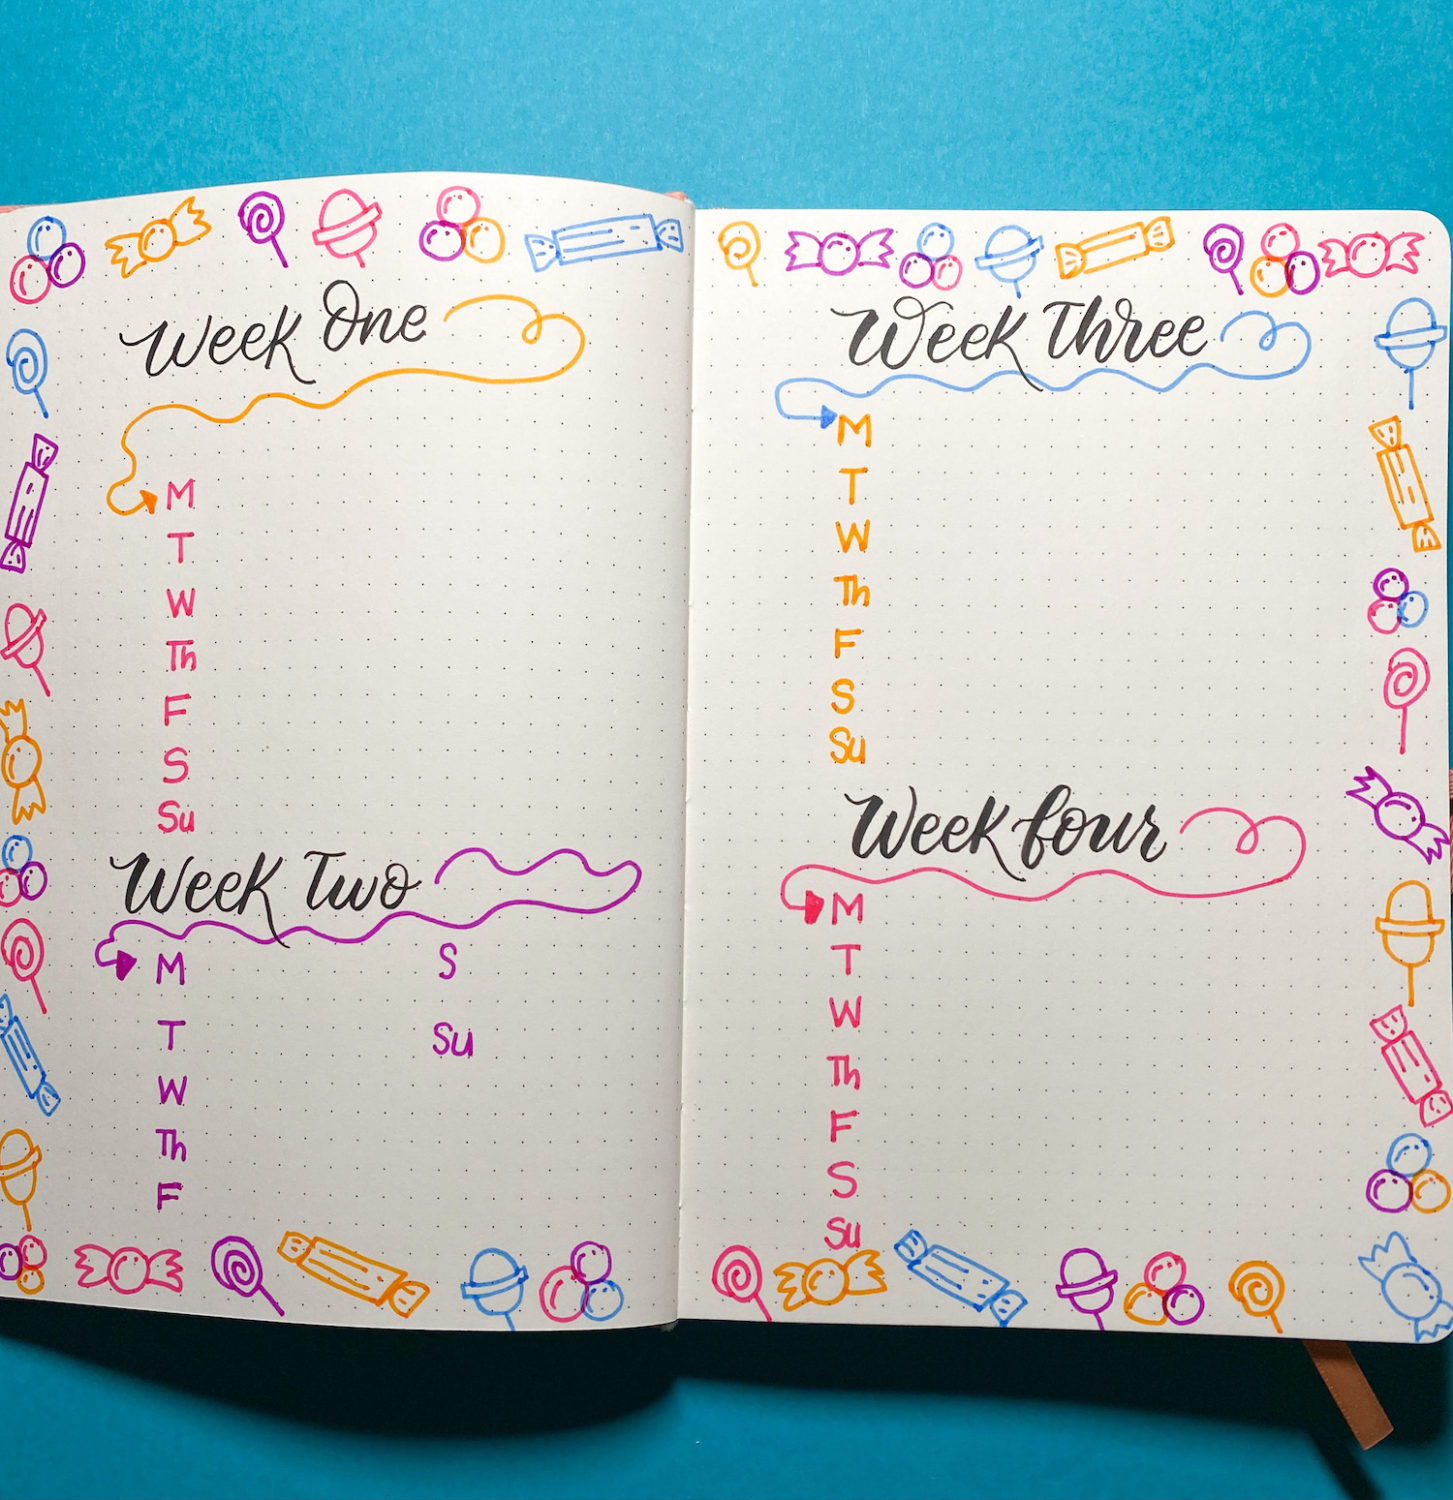 Week One
M
T
W
Th
F
S
Su
Week Two
M
T
W
Th
F
S
Su
Week Three
M
T
W
Th
F
S
Su
Week four
M
T
W
Th
F
S
Su